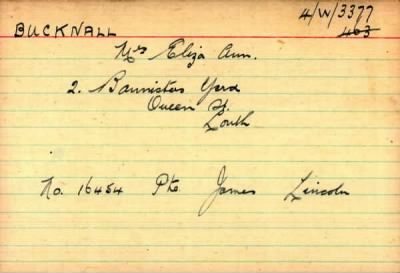 4/W/3377
BUCKNALL 463
Mrs Eliza Ann.
2. Bannisters Yard
Queen St.
Louth
No. 16454 Pte James Lincoln